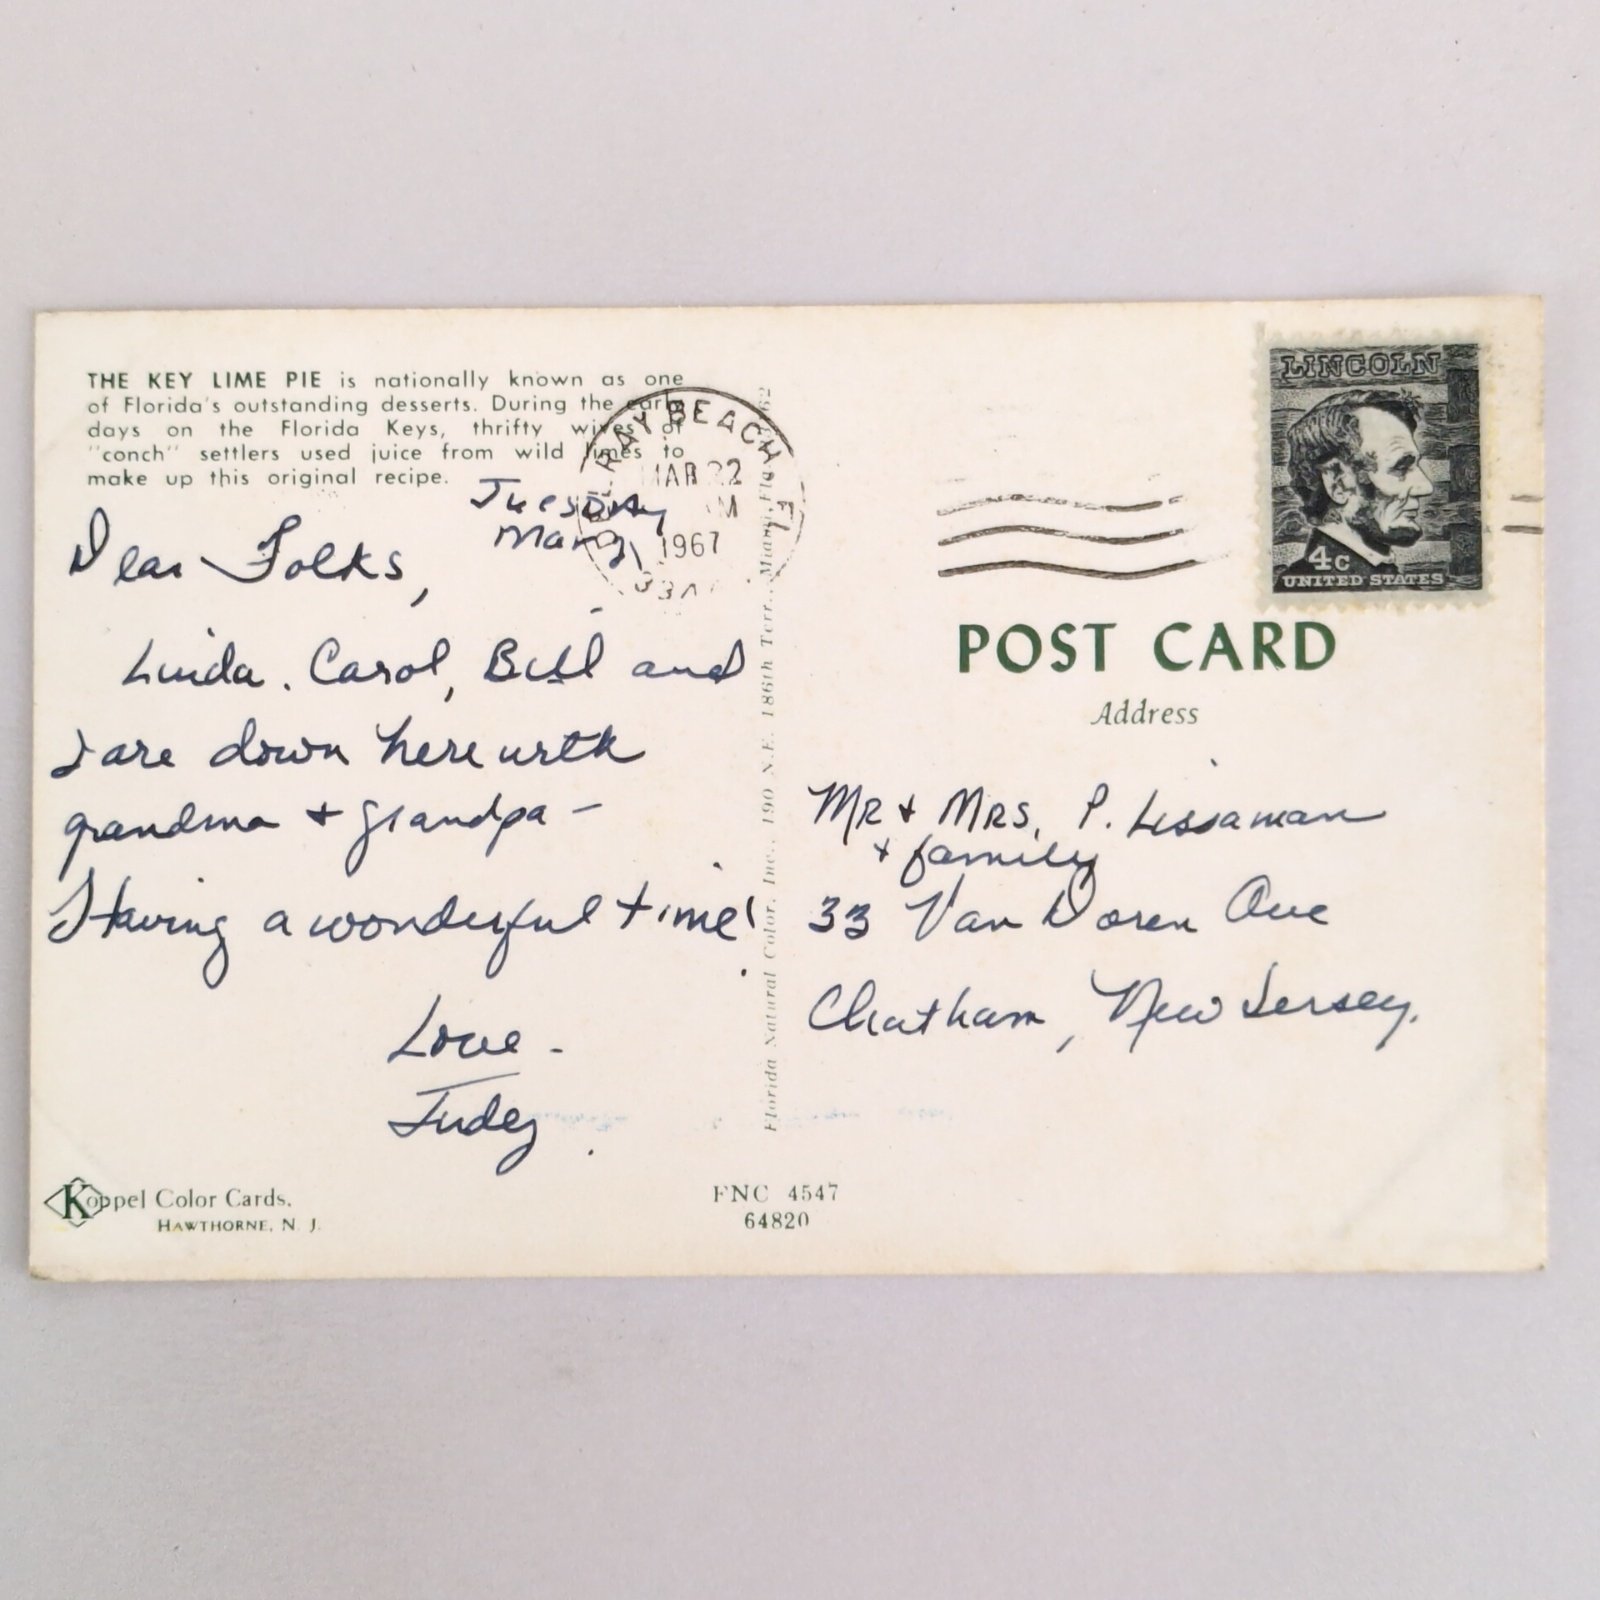 THE KEY LIME PIE is nationally known as one
of Florida's outstanding desserts. During the early
days on the Florida Keys, thrifty wives of
"conch" settlers used juice from wild limes to
make up this original recipe.
RAY BEACH FL
MAR 22
M
1967
Tuesday
Dear Folks,
Linda. Carol, Bill and
I are down here with
grandma + grandpa -
Having a wonderful time!
Love -
Judy.
Koppel Color Cards.
HAWTHORNE, N. J.
Florida Natural Color, Inc., 190 N.E. 186th Terr., Miami, Fla. 62
FNC 4547
64820
LINCOLN
4c
UNITED STATES
POST CARD
Address
MR + MRS. P. Lissaman
+ family
33 Van Doren Ave
Chatham, New Jersey.